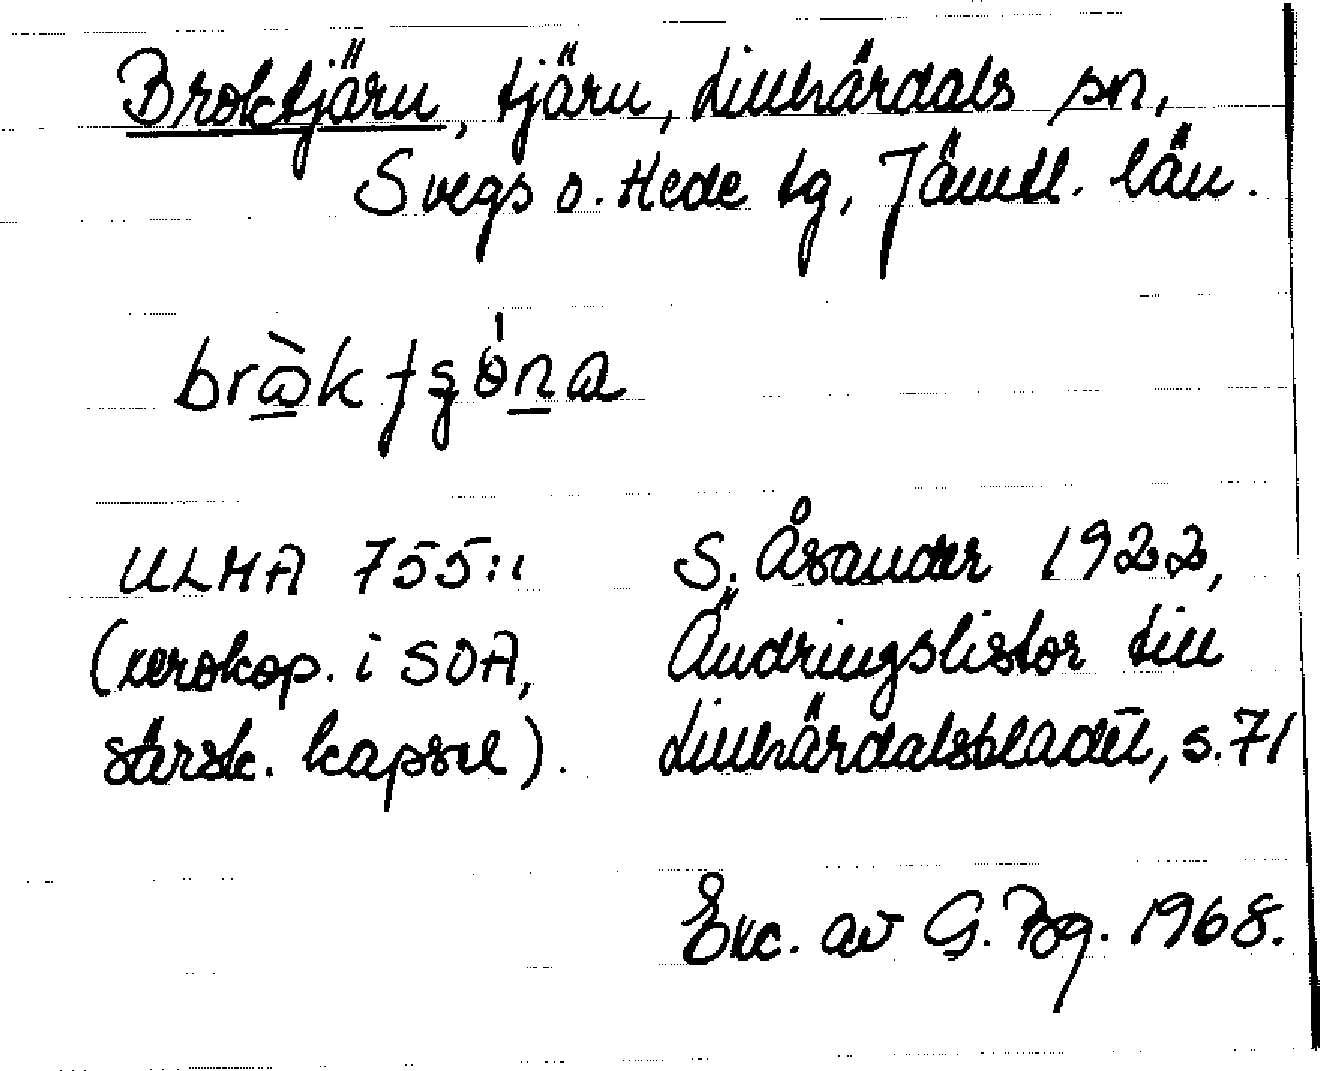 Broktjärn, tjärn, Lillhärdals sn,
Svegs o. Hede tg, Jämtl. län.
ULMA 755:1 S. Åsander 1922,
(xerokop. i SOA, Ändringslistor till
särsk. kapsel). Lillhärdalsbladet, s. 71
Exc. av G. Bg. 1968.